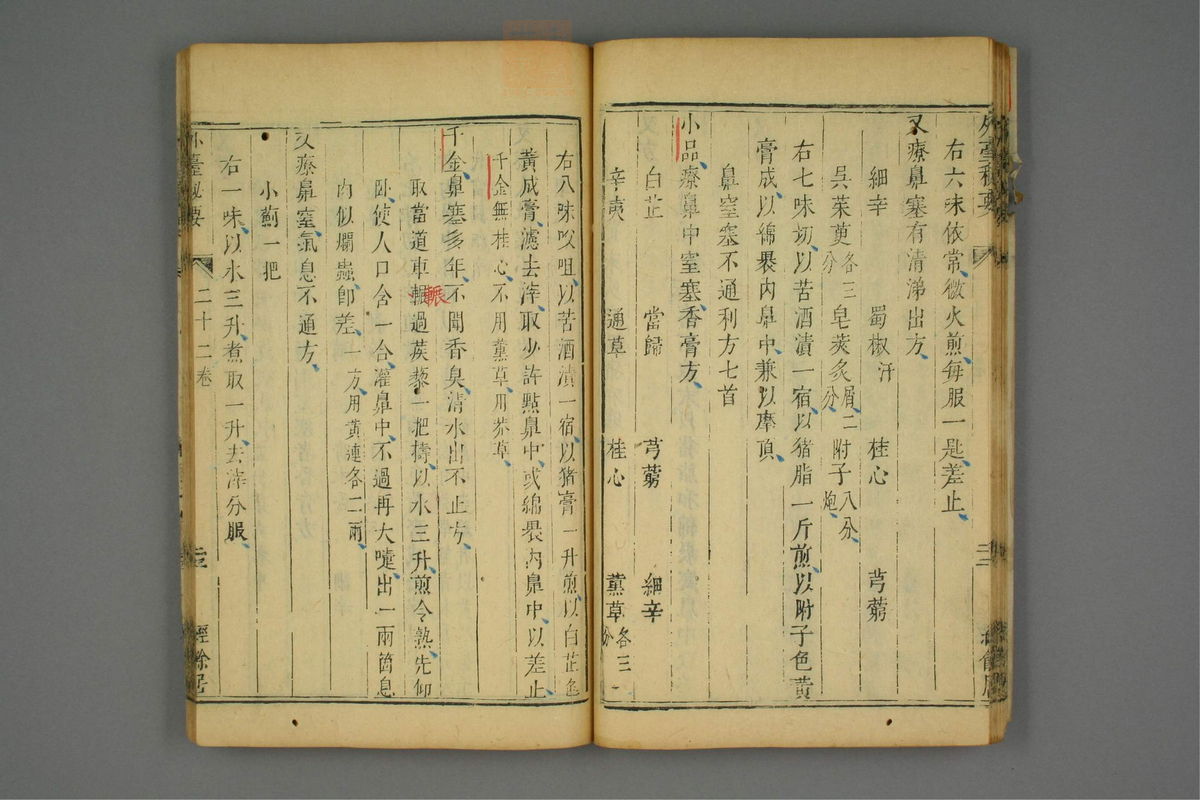 外臺秘要
右六味依常微火煎每服一匙差止
又療鼻塞有清涕出方
細辛 蜀椒汗 桂心 芎藭
吳茱萸各三分 皂莢炙屑二分 附子八分炮
右七味切以苦酒漬一宿以猪脂一斤煎以附子色黄
膏成以綿褁内鼻中兼以摩頂
鼻窒塞不通利方七首
小品療鼻中窒塞香膏方
白芷 當歸 芎藭 細辛
辛夷 通草 桂心 薰草各三分
右八味㕮咀以苦酒漬一宿以猪膏一升煎以白芷色
黄成膏濾去滓取少許點鼻中或綿褁内鼻中以差止
千金無桂心不用薰草用莽草
千金鼻塞多年不聞香臭清水出不止方
取當道車輾過蒺藜一把擣以水三升煎令熟先仰
卧使人口含一合灌鼻中不過再大嚏出一兩箇息
肉似爛蟲即差一方用黄連各二兩
又療鼻窒氣息不通方
小薊一把
右一味以水三升煮取一升去滓分服
外臺秘要 二十二卷 經餘居